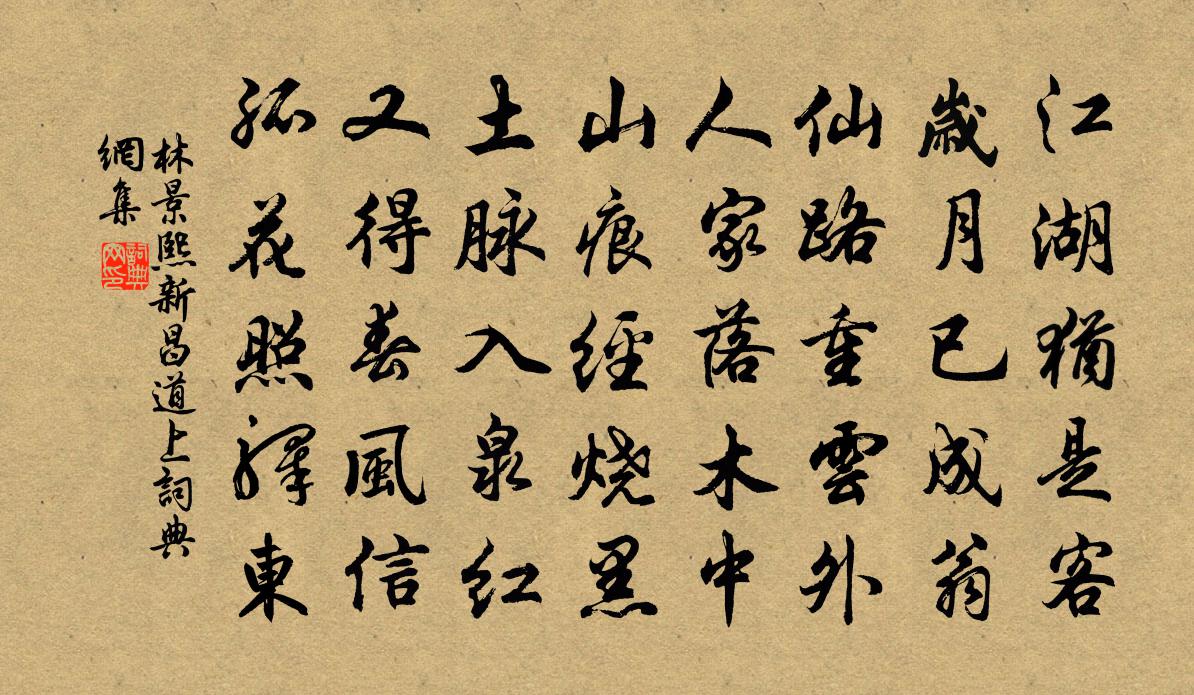 江湖猶是客
歲月已成翁
仙路重雲外
人家落木中
山痕經燒黑
土脉入泉红
又得春風信
孤花照驛東
林景熙新昌道上詞典
網集
詞典
网印